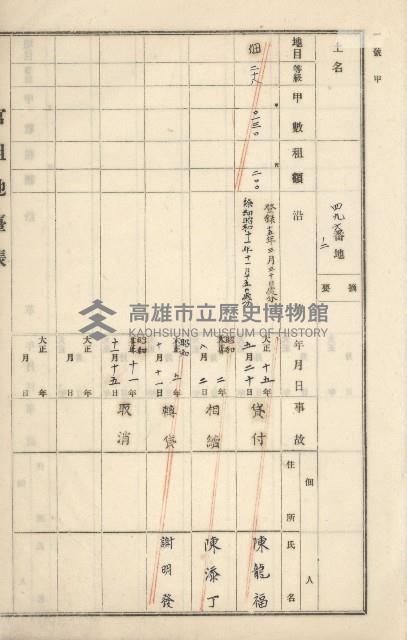 一號甲
土名
四九六番地
ノ二
摘要
地目
等級
甲數
租額
沿
年月日
事故
住所
氏名
個人
畑
二十八
〇一三〇
二〇〇
登錄
大正十五年五月二十日
貸付
陳龍福
除却昭和十一年十一月十五日處分
昭和二年八月二日
相續
陳添丁
昭和
十月十一日
轉貸
謝明發
昭和十一年十一月十五日
取消
大正年月日
大正年月日
官租地臺帳
高雄市立歷史博物館
KAOHSIUNG MUSEUM OF HISTORY